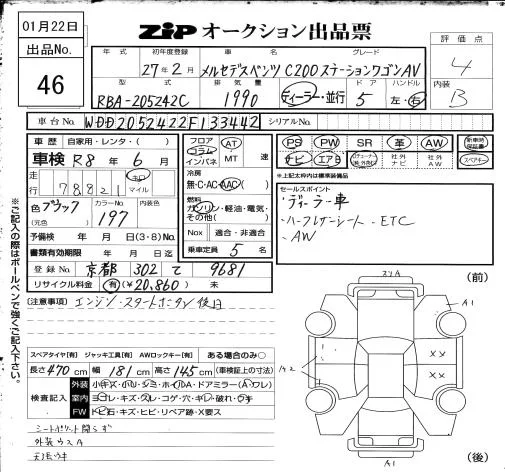 01月22日
ZIP オークション出品票
出品No.
46
評価点
4
内装
B
年式 初年度登録 車名 グレード
27年2月 メルセデスベンツ C200ステーションワゴンAV
型式 排気量 ドア ハンドル
RBA-205242C 1990 ディーラー・並行 5 左・右
車台No. WDD2052422F133442 シリアルNo.
車歴 自家用・レンタ・( )
車検 R8年6月
走行 78821 キロ マイル
色 ブラック カラーNo. 197 内装色
(元色)
予備検 年 月 日(3・8)No.
書類有効期限 年 月 日迄
登録No. 京都 302 て 9681
リサイクル料金 有(¥20,860) 未
フロア コラム インパネ AT MT 速
冷房
無・C・AC(AAC)
燃料
ガソリン・軽油・電気・その他( )
Nox 適合・非適合
乗車定員 5 名
PS PW SR 革 AW 新車時保証書
ナビ エアB 社外ナビ 社外AW スペアキー
※上記太枠内は標準装備
セールスポイント
・ディーラー車
・ハーフレザーシート・ETC
・AW
(注意事項) エンジンスタートボタン
スペアタイヤ[有] ジャッキ工具[有] AWロックキー[有] ある場合のみ○
長さ470cm 幅181cm 高さ145cm (車検証上の寸法)
検査記入
外装 小キズ・小凹・シミ・ホイルA・ドアミラー(A・ワレ)
室内 ヨゴレ・キズ・スレ・コゲ・穴・キレ・破れ・ウキ
FW トビ石・キズ・ヒビ・リペア跡・X要ス
外装ウスA
天張ウキ
(前)
スリA
A1
A2
XX
XX
A1
(後)
※ご記入の際はボールペンで強くご記入下さい。